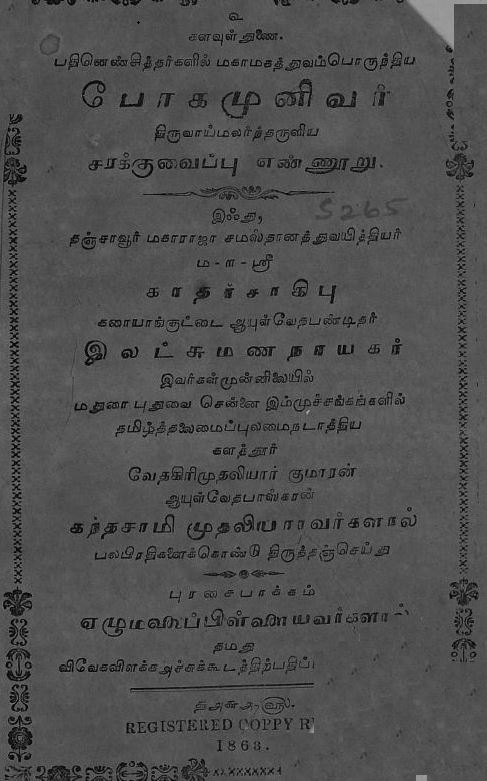 உ
கடவுள் துணை.
பதினெண்சித்தர்களில் மகாமகத்துவம்பொருந்திய
போகமுனிவர்
திருவாய்மலர்ந்தருளிய
சரக்குவைப்பு எண்ணூறு.
இஃது,
S265
தஞ்சாவூர் மகாராஜா சமஸ்தானத்துவயித்தியர்
ம-ா-ஸ்ரீ
காதர்சாகிபு
ஆயுள்வேதபண்டிதர்
இலட்சுமணநாயகர்
இவர்கள்முன்னிலையில்
மதுரை புதுவை சென்னை இம்முச்சங்கங்களில்
தமிழ்த்தலைமைப்புலமைநடாத்திய
களத்தூர்
வேதகிரிமுதலியார் குமாரன்
ஆயுள்வேதபாஸ்கரன்
கந்தசாமி முதலியாரவர்களால்
பலபிரதிகளைக்கொண்டு திருத்தஞ்செய்து
புரசைபாக்கம்
ஏழுமலைப்பிள்ளையவர்களா
தமது
விவேகவிளக்கஅச்சுக்கூடத்திற்பதிப்
REGISTERED COPPY R
1863.